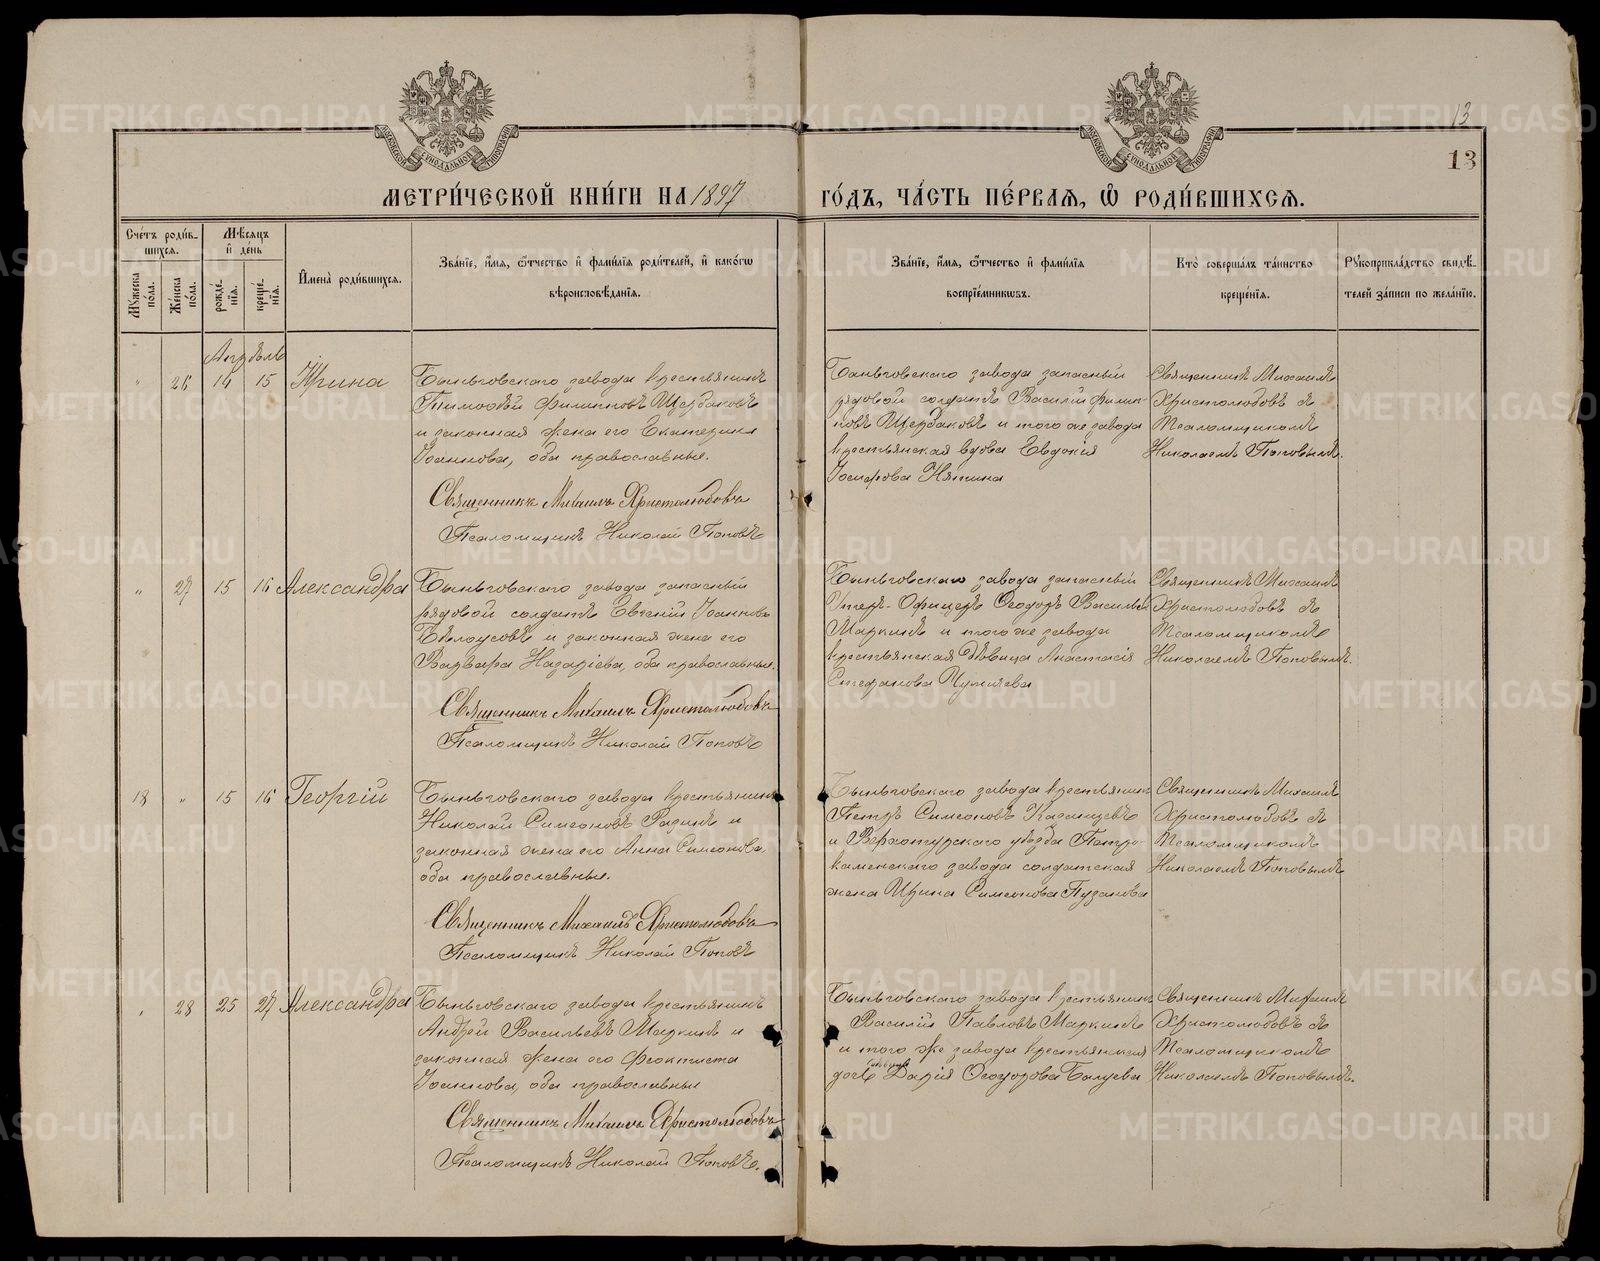 13
13
МОСКОВСКОЙ СѴНОДАЛЬНОЙ ТИПОГРАФІИ
МОСКОВСКОЙ СѴНОДАЛЬНОЙ ТИПОГРАФІИ
МЕТРИ́ЧЕСКОЙ КНИ́ГИ НА 1897 ГО́ДЪ, ЧА́СТЬ ПЕ́РВАѦ, Ѽ РОДИ́ВШИХСѦ.
Сче́тъ роди́в-
шихсѧ.
Мꙋ́жеска по́ла.
Же́нска по́ла.
Мѣ́сѧцъ
и҆ де́нь
рожде́нїѧ.
креще́нїѧ.
И҆мена̀ роди́вшихсѧ.
Зва́нїе, и҆́мѧ, ѻ҆́тчество и҆ фами́лїѧ роди́телей, и҆ како́гѡ
вѣроисповѣ́данїѧ.
Зва́нїе, и҆́мѧ, ѻ҆́тчество и҆ фами́лїѧ
воспрїе́мникѡвъ.
Кто̀ соверша́лъ та́инство
креще́нїѧ.
Рꙋкоприкла́дство свидѣ́-
телей за́писи по жела́нїю.
Апрѣль
" 26 14 15 Ирина
Быньговскаго завода крестьянинъ
Тимоѳей Филипповъ Щербаковъ
и законная жена его Екатерина
Іоаннова, оба православные.
Священникъ Михаилъ Христолюбовъ
Псаломщикъ Николай Поповъ
Быньговскаго завода запасный
рядовой солдатъ Василій Филип-
повъ Щербаковъ и того же завода
крестьянская вдова Евдокія
Іосифова Няпина
Священникъ Михаилъ
Христолюбовъ съ
Псаломщикомъ
Николаемъ Поповымъ.
" 27 15 16 Александра
Быньговскаго завода запасный
рядовой солдатъ Евгеній Іоанновъ
Бѣлоусовъ и законная жена его
Варвара Назаріева, оба православные.
Священникъ Михаилъ Христолюбовъ
Псаломщикъ Николай Поповъ
Быньговскаго завода запасный
Унтеръ-Офицеръ Ѳеодоръ Василіевъ
Маркинъ и того же завода
крестьянская дѣвица Анастасія
Стефанова
Священникъ Михаилъ
Христолюбовъ съ
Псаломщикомъ
Николаемъ Поповымъ.
18 " 15 16 Георгій
Быньговскаго завода крестьянинъ
Николай Симеоновъ и
законная жена его Анна Симеонова,
оба православные.
Священникъ Михаилъ Христолюбовъ
Псаломщикъ Николай Поповъ
Быньговскаго завода крестьянинъ
Петръ Симеоновъ Казанцевъ
и Верхотурскаго уѣзда Петро-
каменскаго завода солдатская
жена Ирина Симеонова Пузанова
Священникъ Михаилъ
Христолюбовъ съ
Псаломщикомъ
Николаемъ Поповымъ
" 28 25 27 Александра
Быньговскаго завода крестьянинъ
Андрей Васильевъ Маркинъ и
законная жена его Феоктиста
Іоаннова, оба православные
Священникъ Михаилъ Христолюбовъ
Псаломщикъ Николай Поповъ.
Быньговскаго завода крестьянинъ
Василій Павловъ Маркинъ
и того же завода крестьянская
дочь Дарія Ѳеодорова
Священникъ Михаилъ
Христолюбовъ съ
Псаломщикомъ
Николаемъ Поповымъ.
METRIKI.GASO-URAL.RU